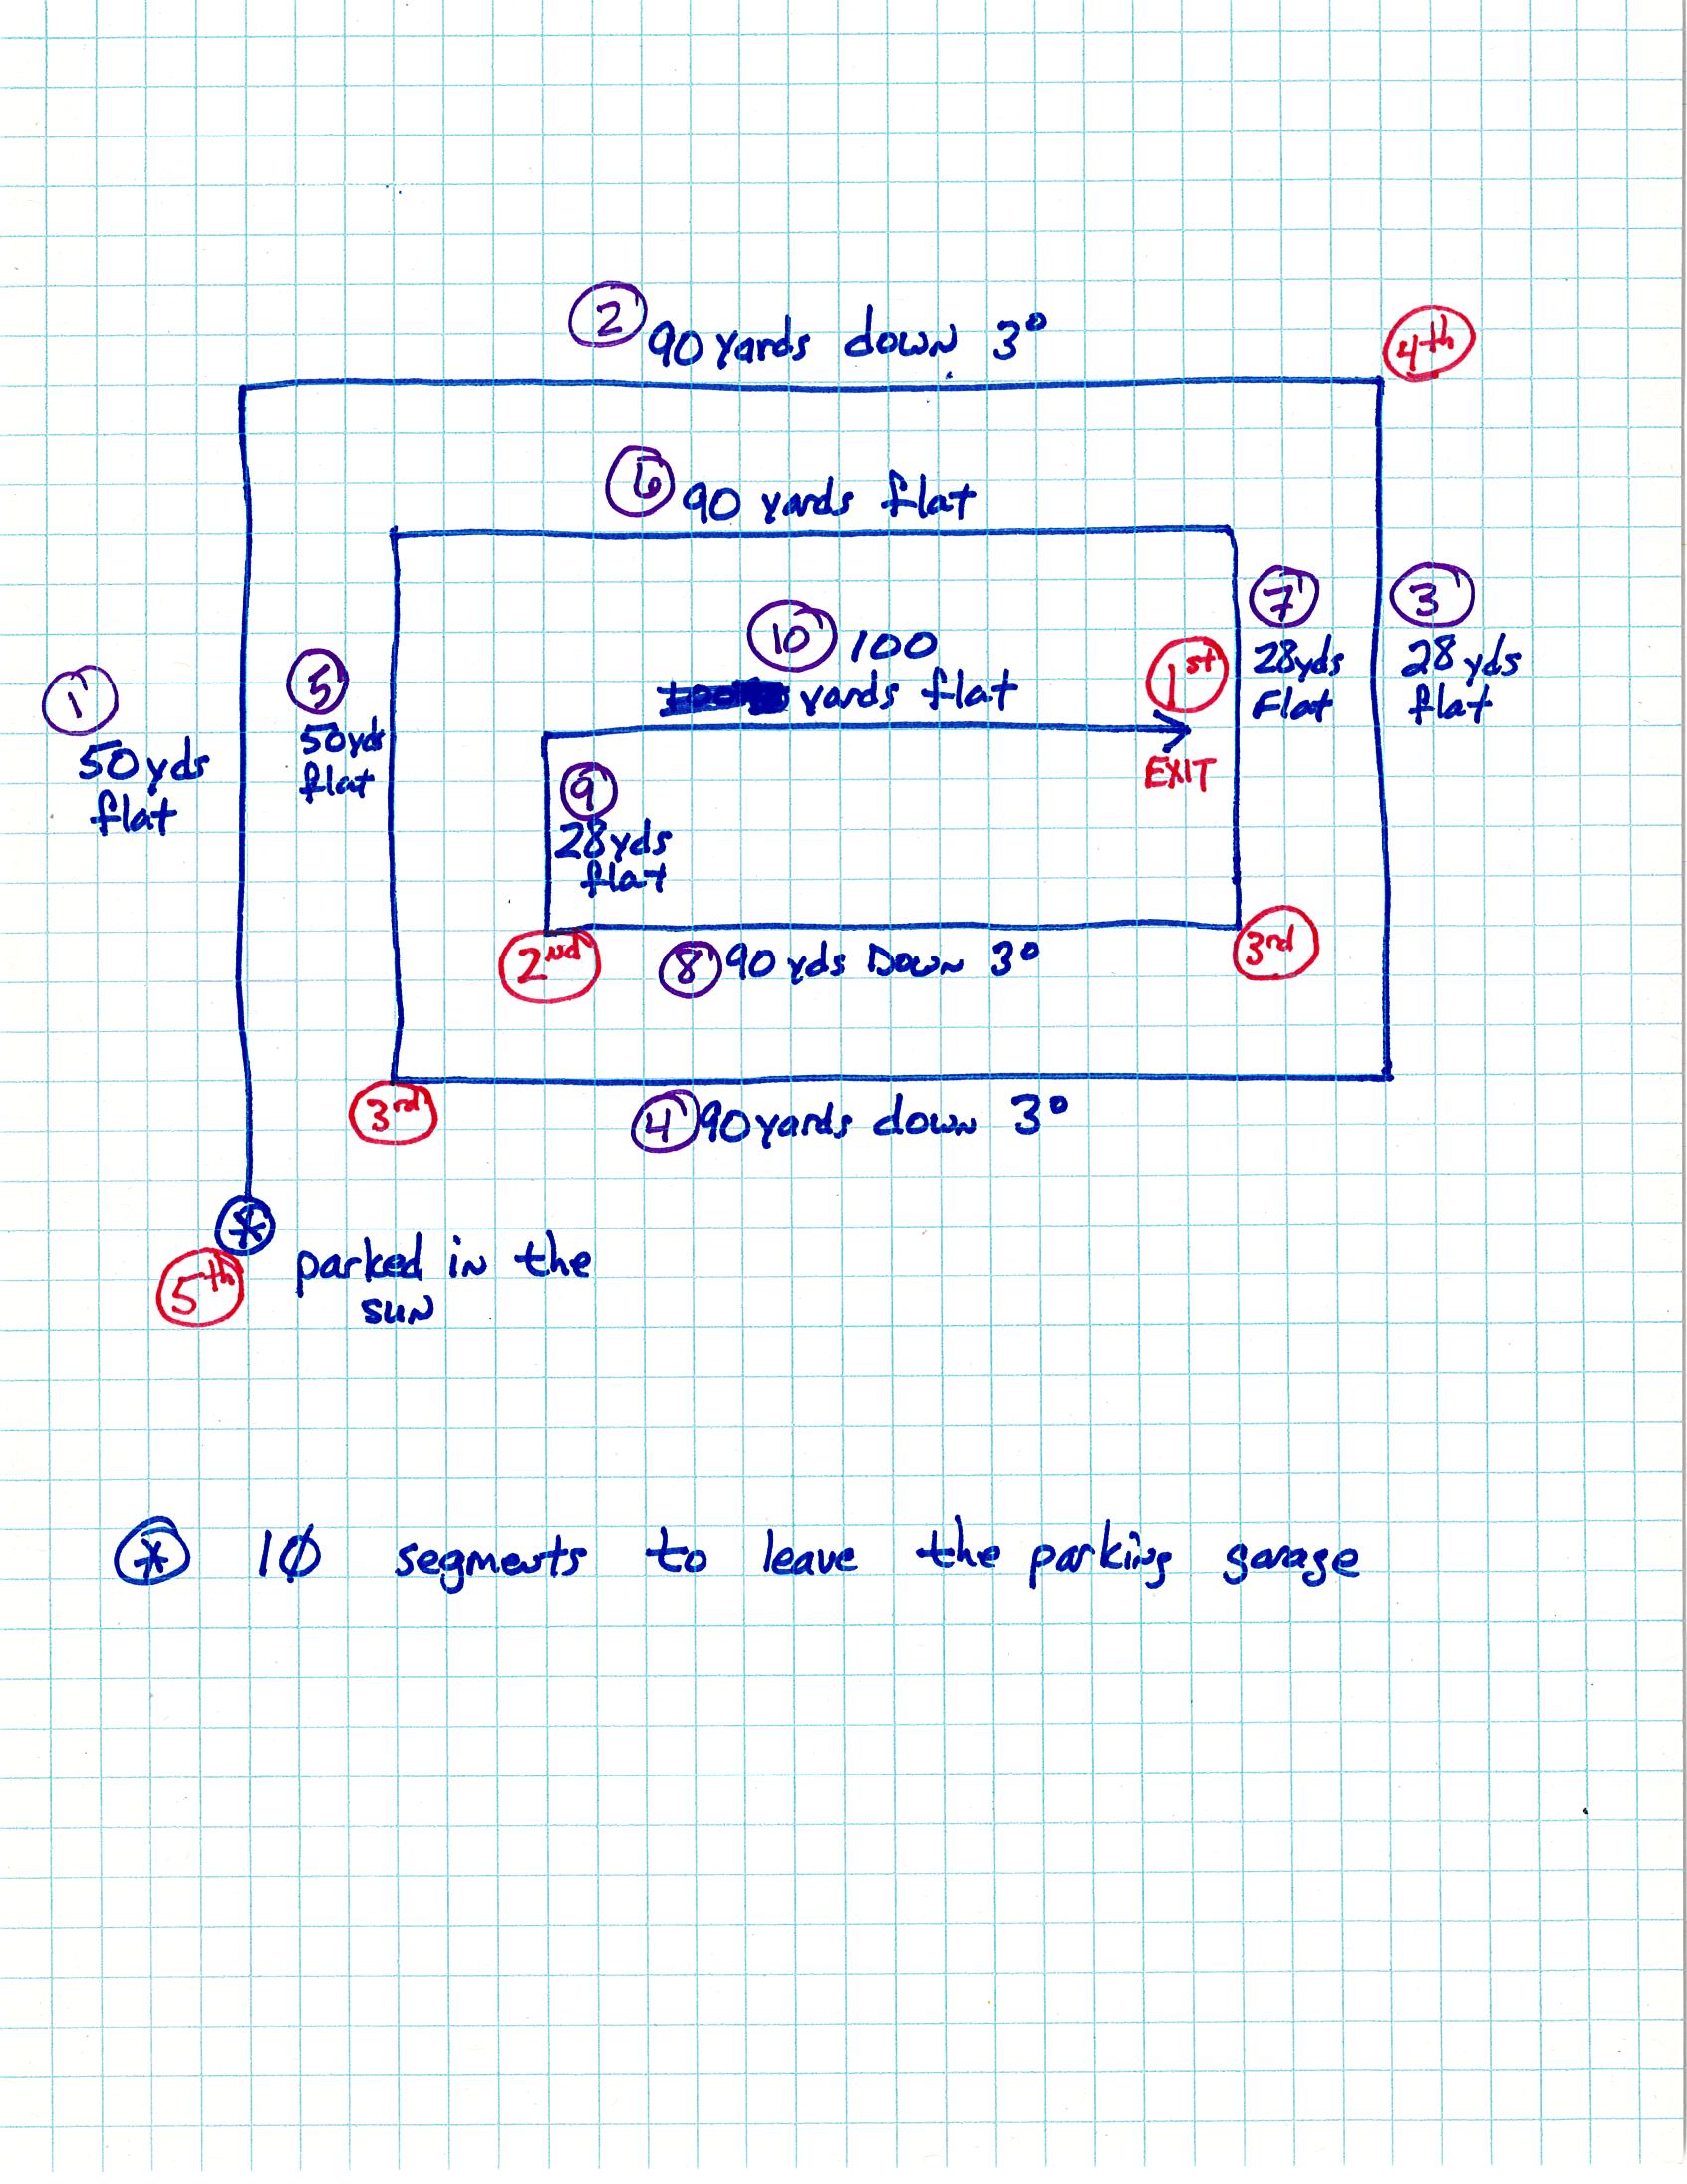 2 90 yards down 3°
4th
6 90 yards flat
10 100
yards flat
1st
EXIT
7
28yds
Flat
3
28 yds
flat
1
50 yds
flat
5
50yds
flat
9
28yds
flat
2nd
8 90 yds Down 3°
3rd
3rd
4 90yards down 3°
*
5th
parked in the
sun
* 10 segments to leave the parking garage